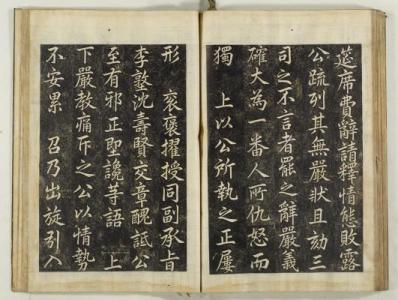 筵席費辭請釋情態敗露
公疏列其無嚴狀且劾三
司之不言者罷之辭嚴義
確大為一番人所仇怒而
獨　上以公所執之正屢
形　袞褒擢授同副承旨
李塾沈壽賢交章醜詆公
至有邪正聖讒等語　上
下嚴教痛斥之公以情勢
不安累　召乃出旋引入